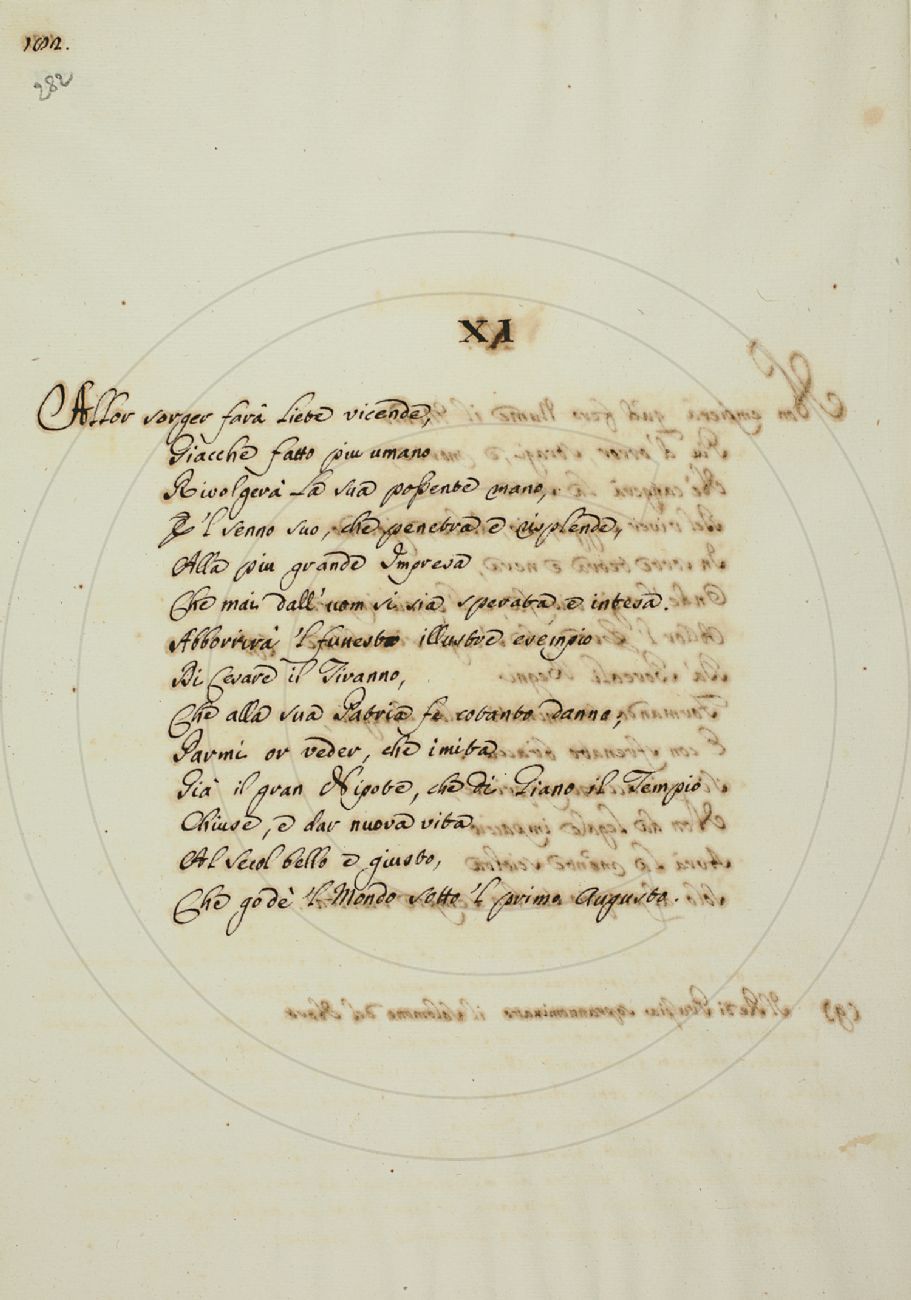 182.
282
XI
Allor sorger farà liete vicende,
Giacchè fatto piu umano
Rivolgerà la sua possente mano,
E 'l senno suo, che penetra e risplende,
Alla piu grande Impresa
Che mai dall' uom si sia sperata e intesa.
Abborrirà 'l funesto illustre esempio
Di Cesare il Tiranno,
Che alla sua Patria fe cotanto danno,
Parmi or veder, che imita
Già il gran Nipote, che di Giano il Tempio
Chiuse, e dar nuova vita
Al secol bello e giusto,
Che godè 'l Mondo sotto 'l primo Augusto.